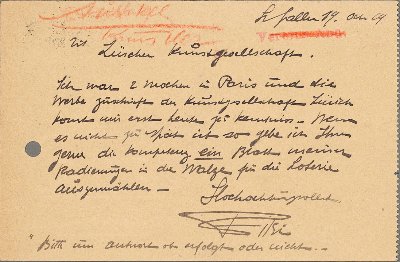 St. Gallen 19. Oct 09
Tit Zürcher Kunstgesellschaft.
Ich war 2 Wochen in Paris und die
Werte Zuschrift der Kunstgesellschaft Zürich
kommt mir erst heute zu Kenntnis – Wenn
es nicht zu spät ist so gebe ich Ihnen
gerne die Kompetenz ein Blatt meiner
Radierungen in die Walze für die Loterie
auszuwählen –
Hochachtungsvollst
Bitte um Antwort ob erfolgt oder nicht. –